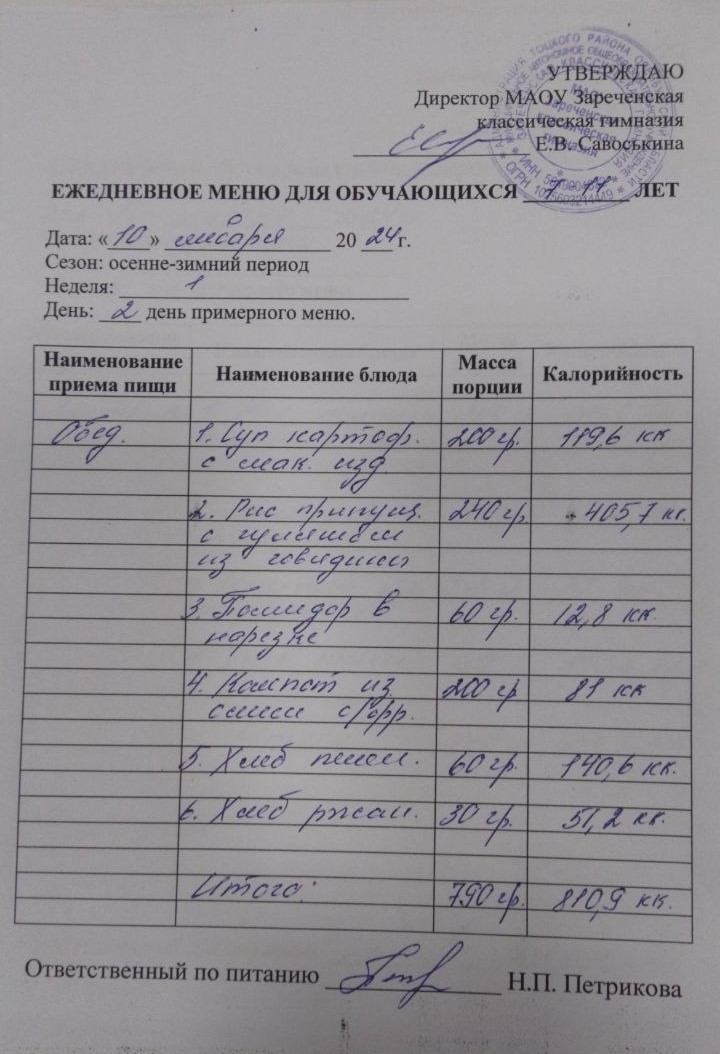 УТВЕРЖДАЮ
Директор МАОУ Зареченская
классическая гимназия
Е.В. Савоськина
ЕЖЕДНЕВНОЕ МЕНЮ ДЛЯ ОБУЧАЮЩИХСЯ 7-17 ЛЕТ
Дата: «10» января 2024 г.
Сезон: осенне-зимний период
Неделя: 1
День: 2 день примерного меню.
Наименование приема пищи Наименование блюда Масса порции Калорийность
Обед. 1. Суп картоф. 200 гр. 119,6 кк
с мак. изд.
2. Рис припущ. 240 гр. 405,7 кк.
с гуляшом
из говядины
3. Помидор в 60 гр. 12,8 кк.
нарезке
4. Компот из 200 гр 81 кк
смеси с/фр.
5. Хлеб пшен. 60 гр. 140,6 кк.
6. Хлеб ржан. 30 гр. 51,2 кк.
Итого: 790 гр. 810,9 кк.
Ответственный по питанию Н.П. Петрикова